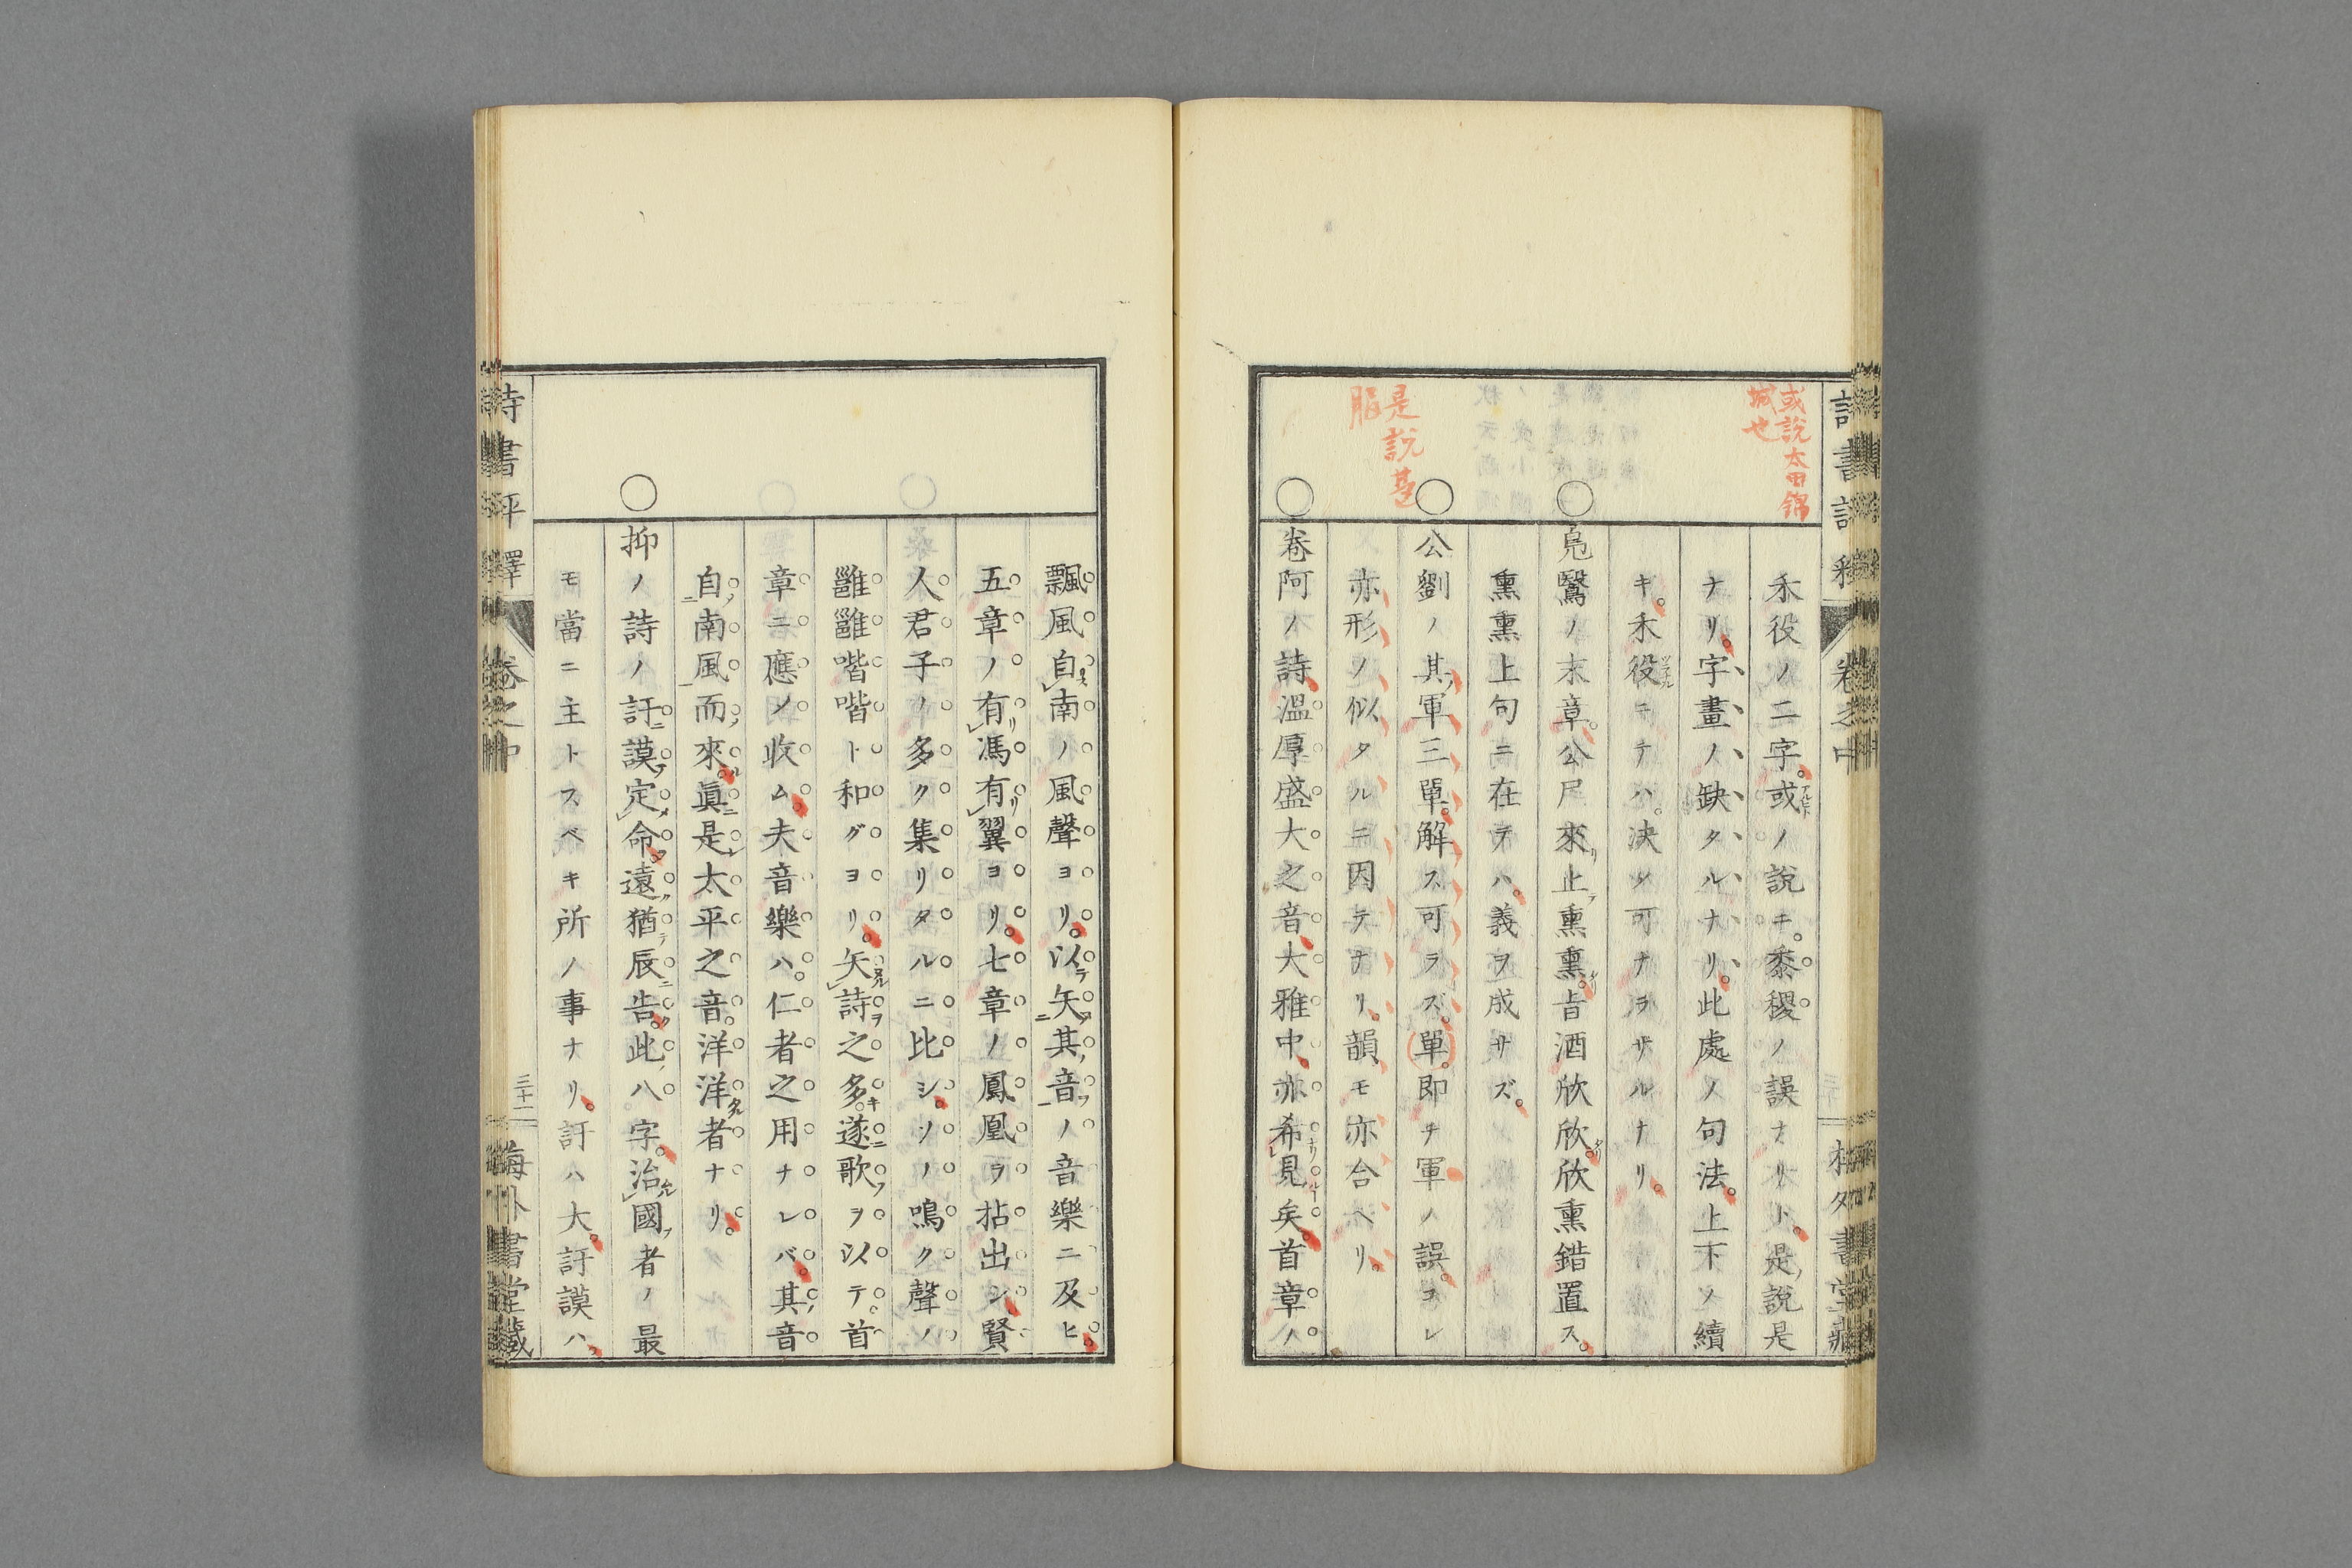 或說太田錦
城也
是說甚
禾役ノ二字。或ノ說ニ。黍稷ノ誤ナリト。是說是
ナリ。字畫ノ缺タルナリ。此處ノ句法。上下ノ續
キ。禾役ニテハ。決メ可ナラザルナリ。
鳧鷖ノ末章。公尸來止熏熏。旨酒欣欣。欣熏錯置ス。
熏熏上句ニ在テハ。義ヲ成サズ。
公劉ノ其軍三單。解ス可ラズ。單。即チ軍ノ誤。コレ
亦形ノ似タルニ因テナリ。韻モ亦合ヘリ。
卷阿ノ詩溫厚盛大之音大雅中。亦希見矣。首章ノ
詩書評釋 卷之中
飄風自南ノ風聲ヨリ。以矢其音ノ音樂ニ及ヒ。
五章ノ有馮有翼ヨリ。七章ノ鳳凰ヲ拈出シ。賢
人君子ノ多ク集リタルニ比シ。ソノ鳴ク聲ノ
雝雝喈喈ト和グヨリ。矢詩之多。遂歌ヲ以テ。首
章ニ應ノ收ム。夫音樂ハ。仁者之用ナレバ。其音
自南風而來。眞是太平之音。洋洋者ナリ。
抑ノ詩ノ訏謨定命。遠猶辰告。此八字。治國者ノ最
モ當ニ主トスベキ所ノ事ナリ。訏ハ大。訏謨ハ、
詩書評釋 卷之中 三十一 梅外書堂藏